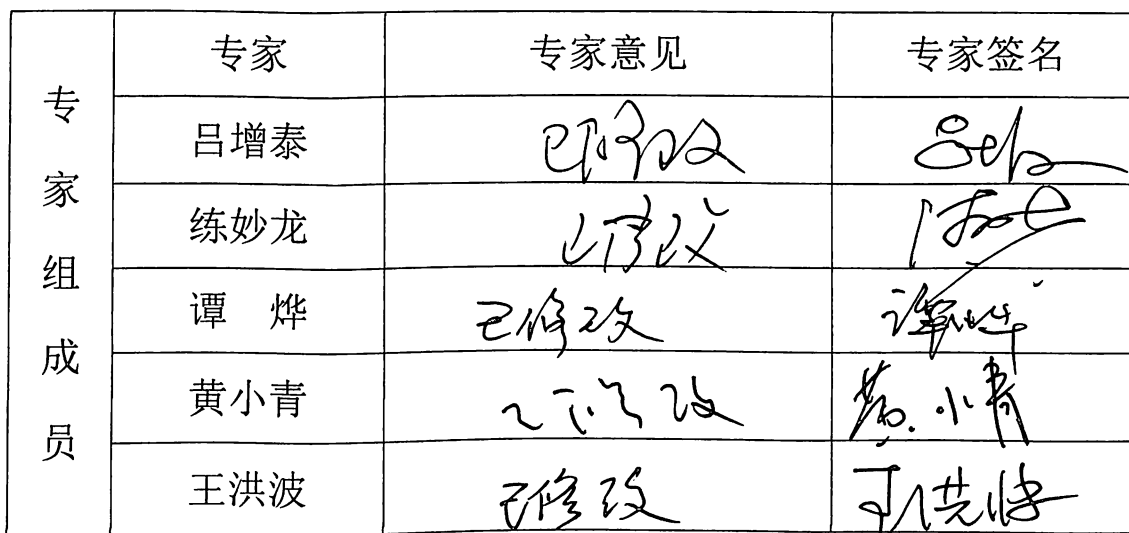 专家组成员
专家 专家意见 专家签名
吕增泰 已修改
练妙龙 已修改
谭 烨 已修改 谭烨
黄小青 已修改 黄小青
王洪波 已修改 王洪波